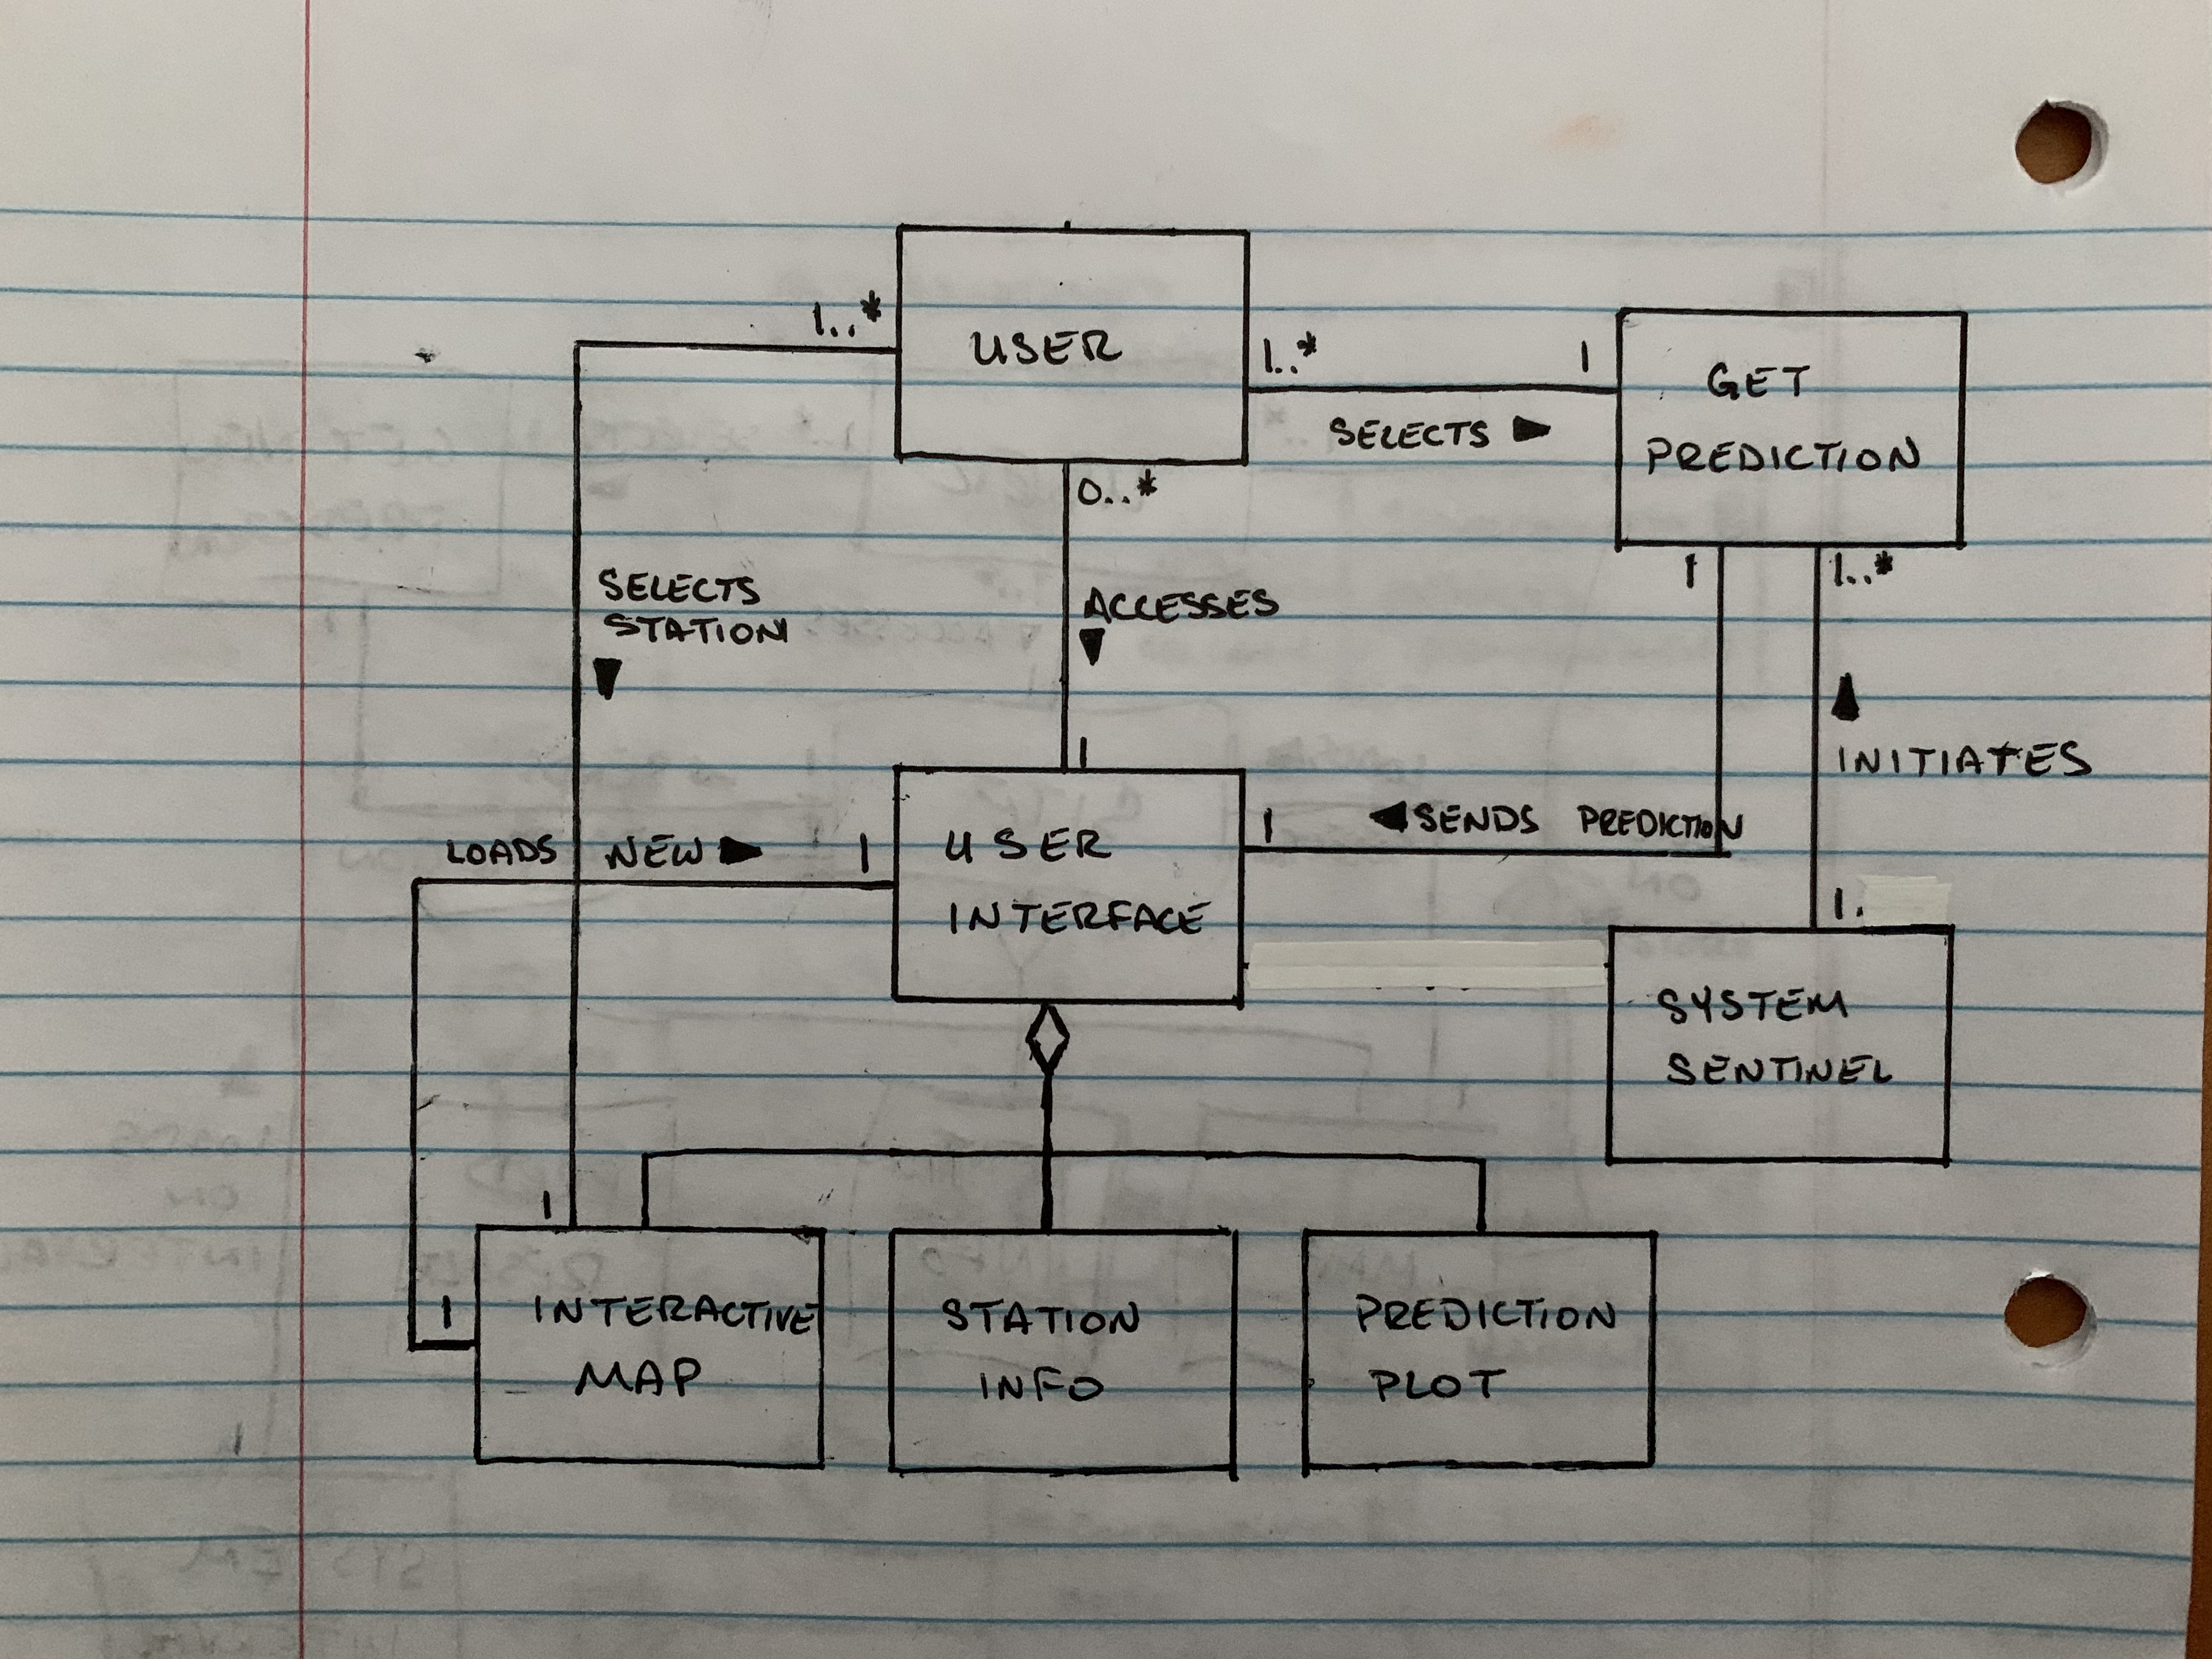 1..*
USER
1..*
1
GET
PREDICTION
SELECTS ►
0..*
1
1..*
SELECTS
STATION
▼
ACCESSES
▼
▲
INITIATES
1
LOADS NEW ►
1
USER
INTERFACE
1
◄ SENDS PREDICTION
1.
SYSTEM
SENTINEL
1
1
INTERACTIVE
MAP
STATION
INFO
PREDICTION
PLOT